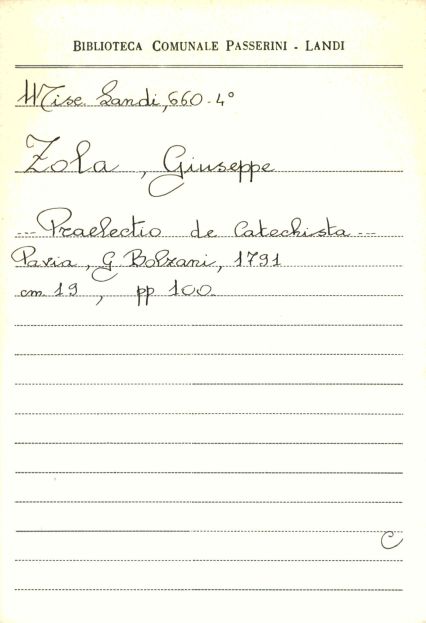 BIBLIOTECA COMUNALE PASSERINI - LANDI
Misc. Landi, 660-4°
Zola, Giuseppe
--- Praelectio de Catechista ---
Pavia, G. Bolzani, 1791
cm 19, pp 100
C